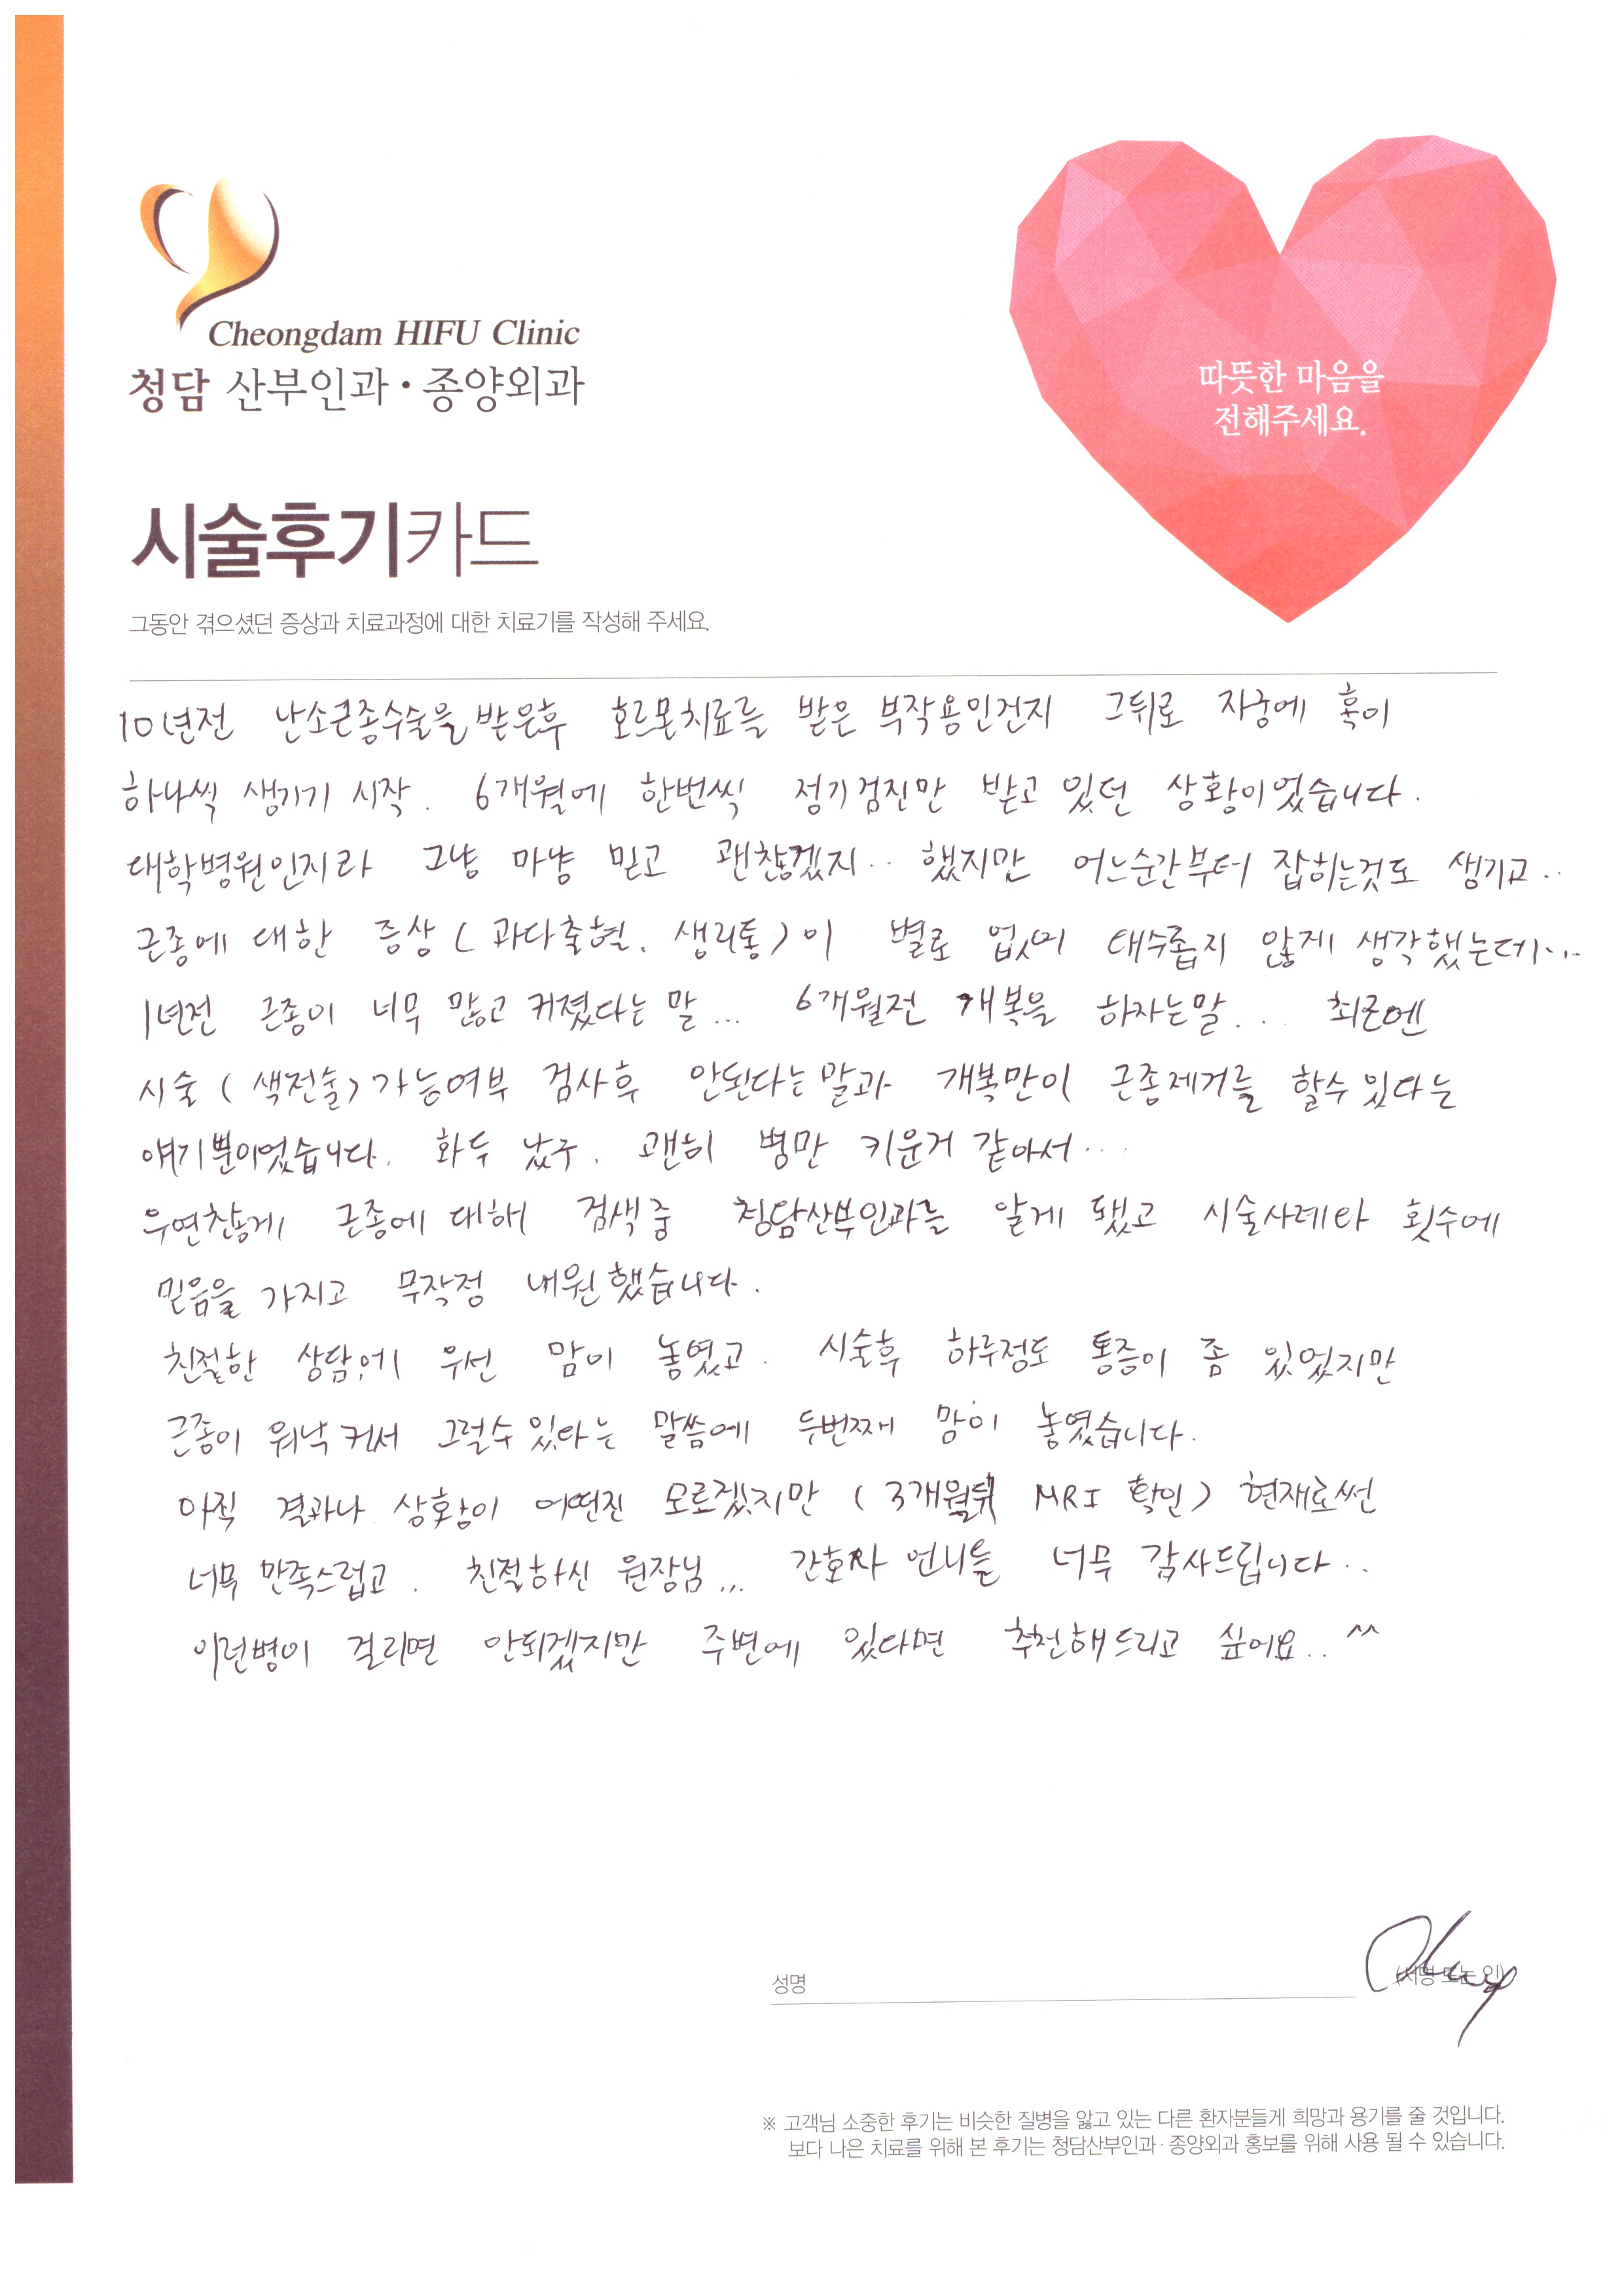 Cheongdam HIFU Clinic
청담 산부인과·종양외과
따뜻한 마음을
전해주세요.
시술후기카드
그동안 겪으셨던 증상과 치료과정에 대한 치료기를 작성해 주세요.
10년전 난소근종수술을 받은후 호르몬치료를 받은 부작용인건지 그뒤로 자궁에 혹이
하나씩 생기기 시작. 6개월에 한번씩 정기검진만 받고 있던 상황이었습니다.
대학병원인지라 그냥 마냥 믿고 괜찮겠지.. 했지만 어느순간부터 잡히는것도 생기고..
근종에 대한 증상 (과다출혈, 생리통)이 별로 없어 대수롭지 않게 생각했는데...
1년전 근종이 너무 많고 커졌다는 말... 6개월전 개복을 하자는말... 최근엔
시술 (색전술)가능여부 검사후 안된다는 말과 개복만이 근종제거를 할수 있다는
얘기뿐이었습니다. 화두 났구. 괜히 병만 키운거 같아서...
우연찮게 근종에 대해 검색중 청담산부인과를 알게 됐고 시술사례와 횟수에
믿음을 가지고 무작정 내원했습니다.
친절한 상담에 우선 맘이 놓였고. 시술후 하루정도 통증이 좀 있었지만
근종이 워낙 커서 그럴수있다는 말씀에 두번째 맘이 놓였습니다.
아직 결과나 상황이 어떤진 모르겠지만 (3개월뒤 MRI 확인) 현재로썬
너무 만족스럽고. 친절하신 원장님... 간호사 언니들 너무 감사드립니다..
이런병이 걸리면 안되겠지만 주변에 있다면 추천해드리고 싶어요.. ^^
성명
(서명 또는 인)
※ 고객님 소중한 후기는 비슷한 질병을 앓고 있는 다른 환자분들게 희망과 용기를 줄 것입니다.
보다 나은 치료를 위해 본 후기는 청담산부인과·종양외과 홍보를 위해 사용 될 수 있습니다.